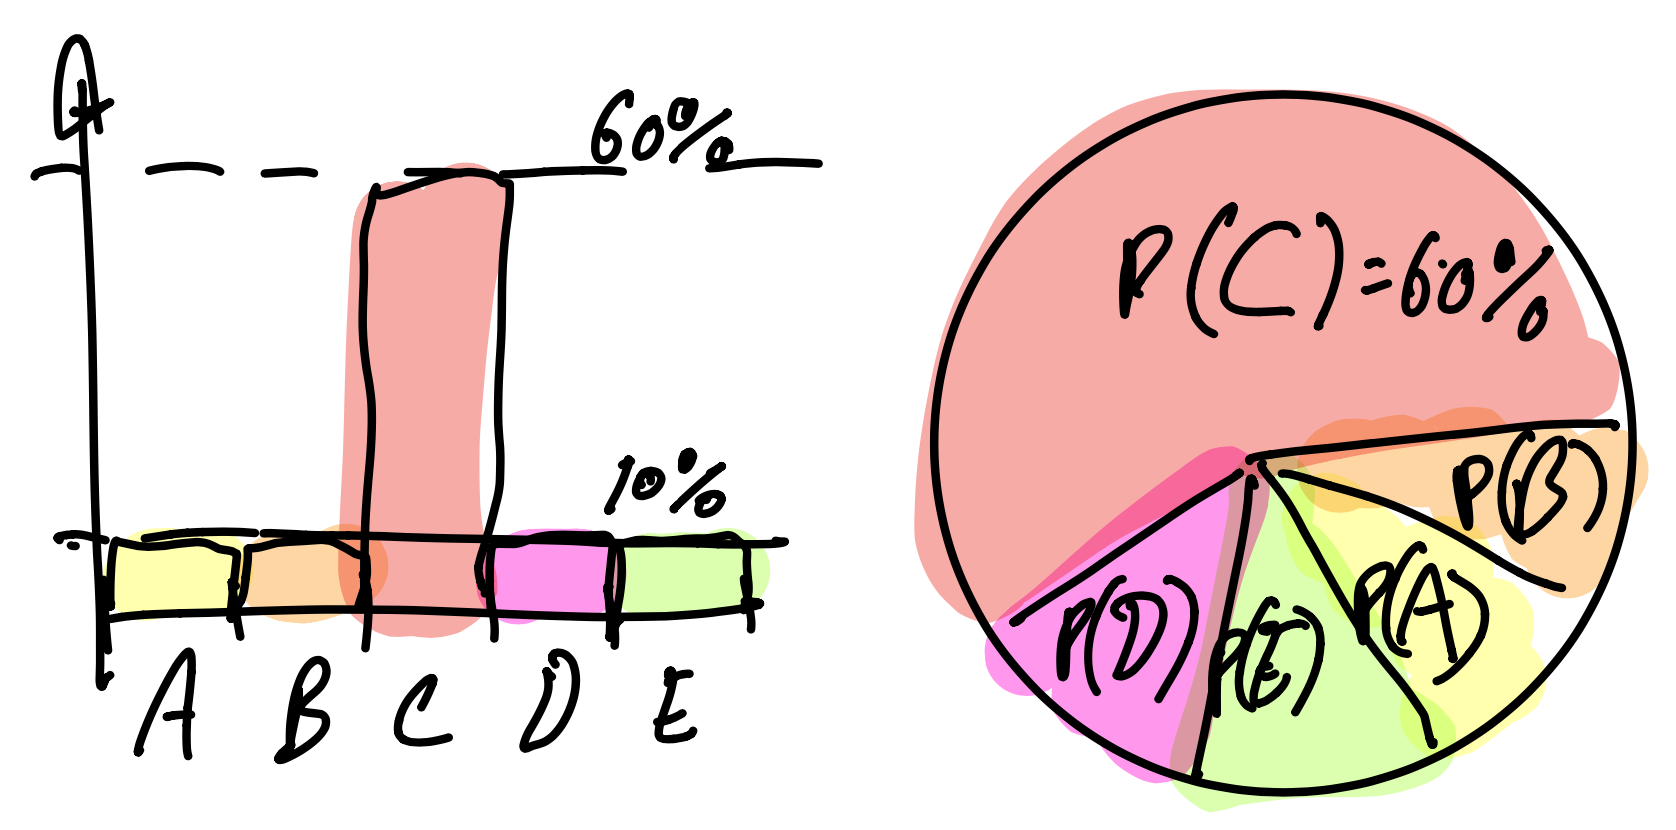 60%
10%
A B C D E
P(C)=60%
P(B)
P(A)
P(D)
P(E)